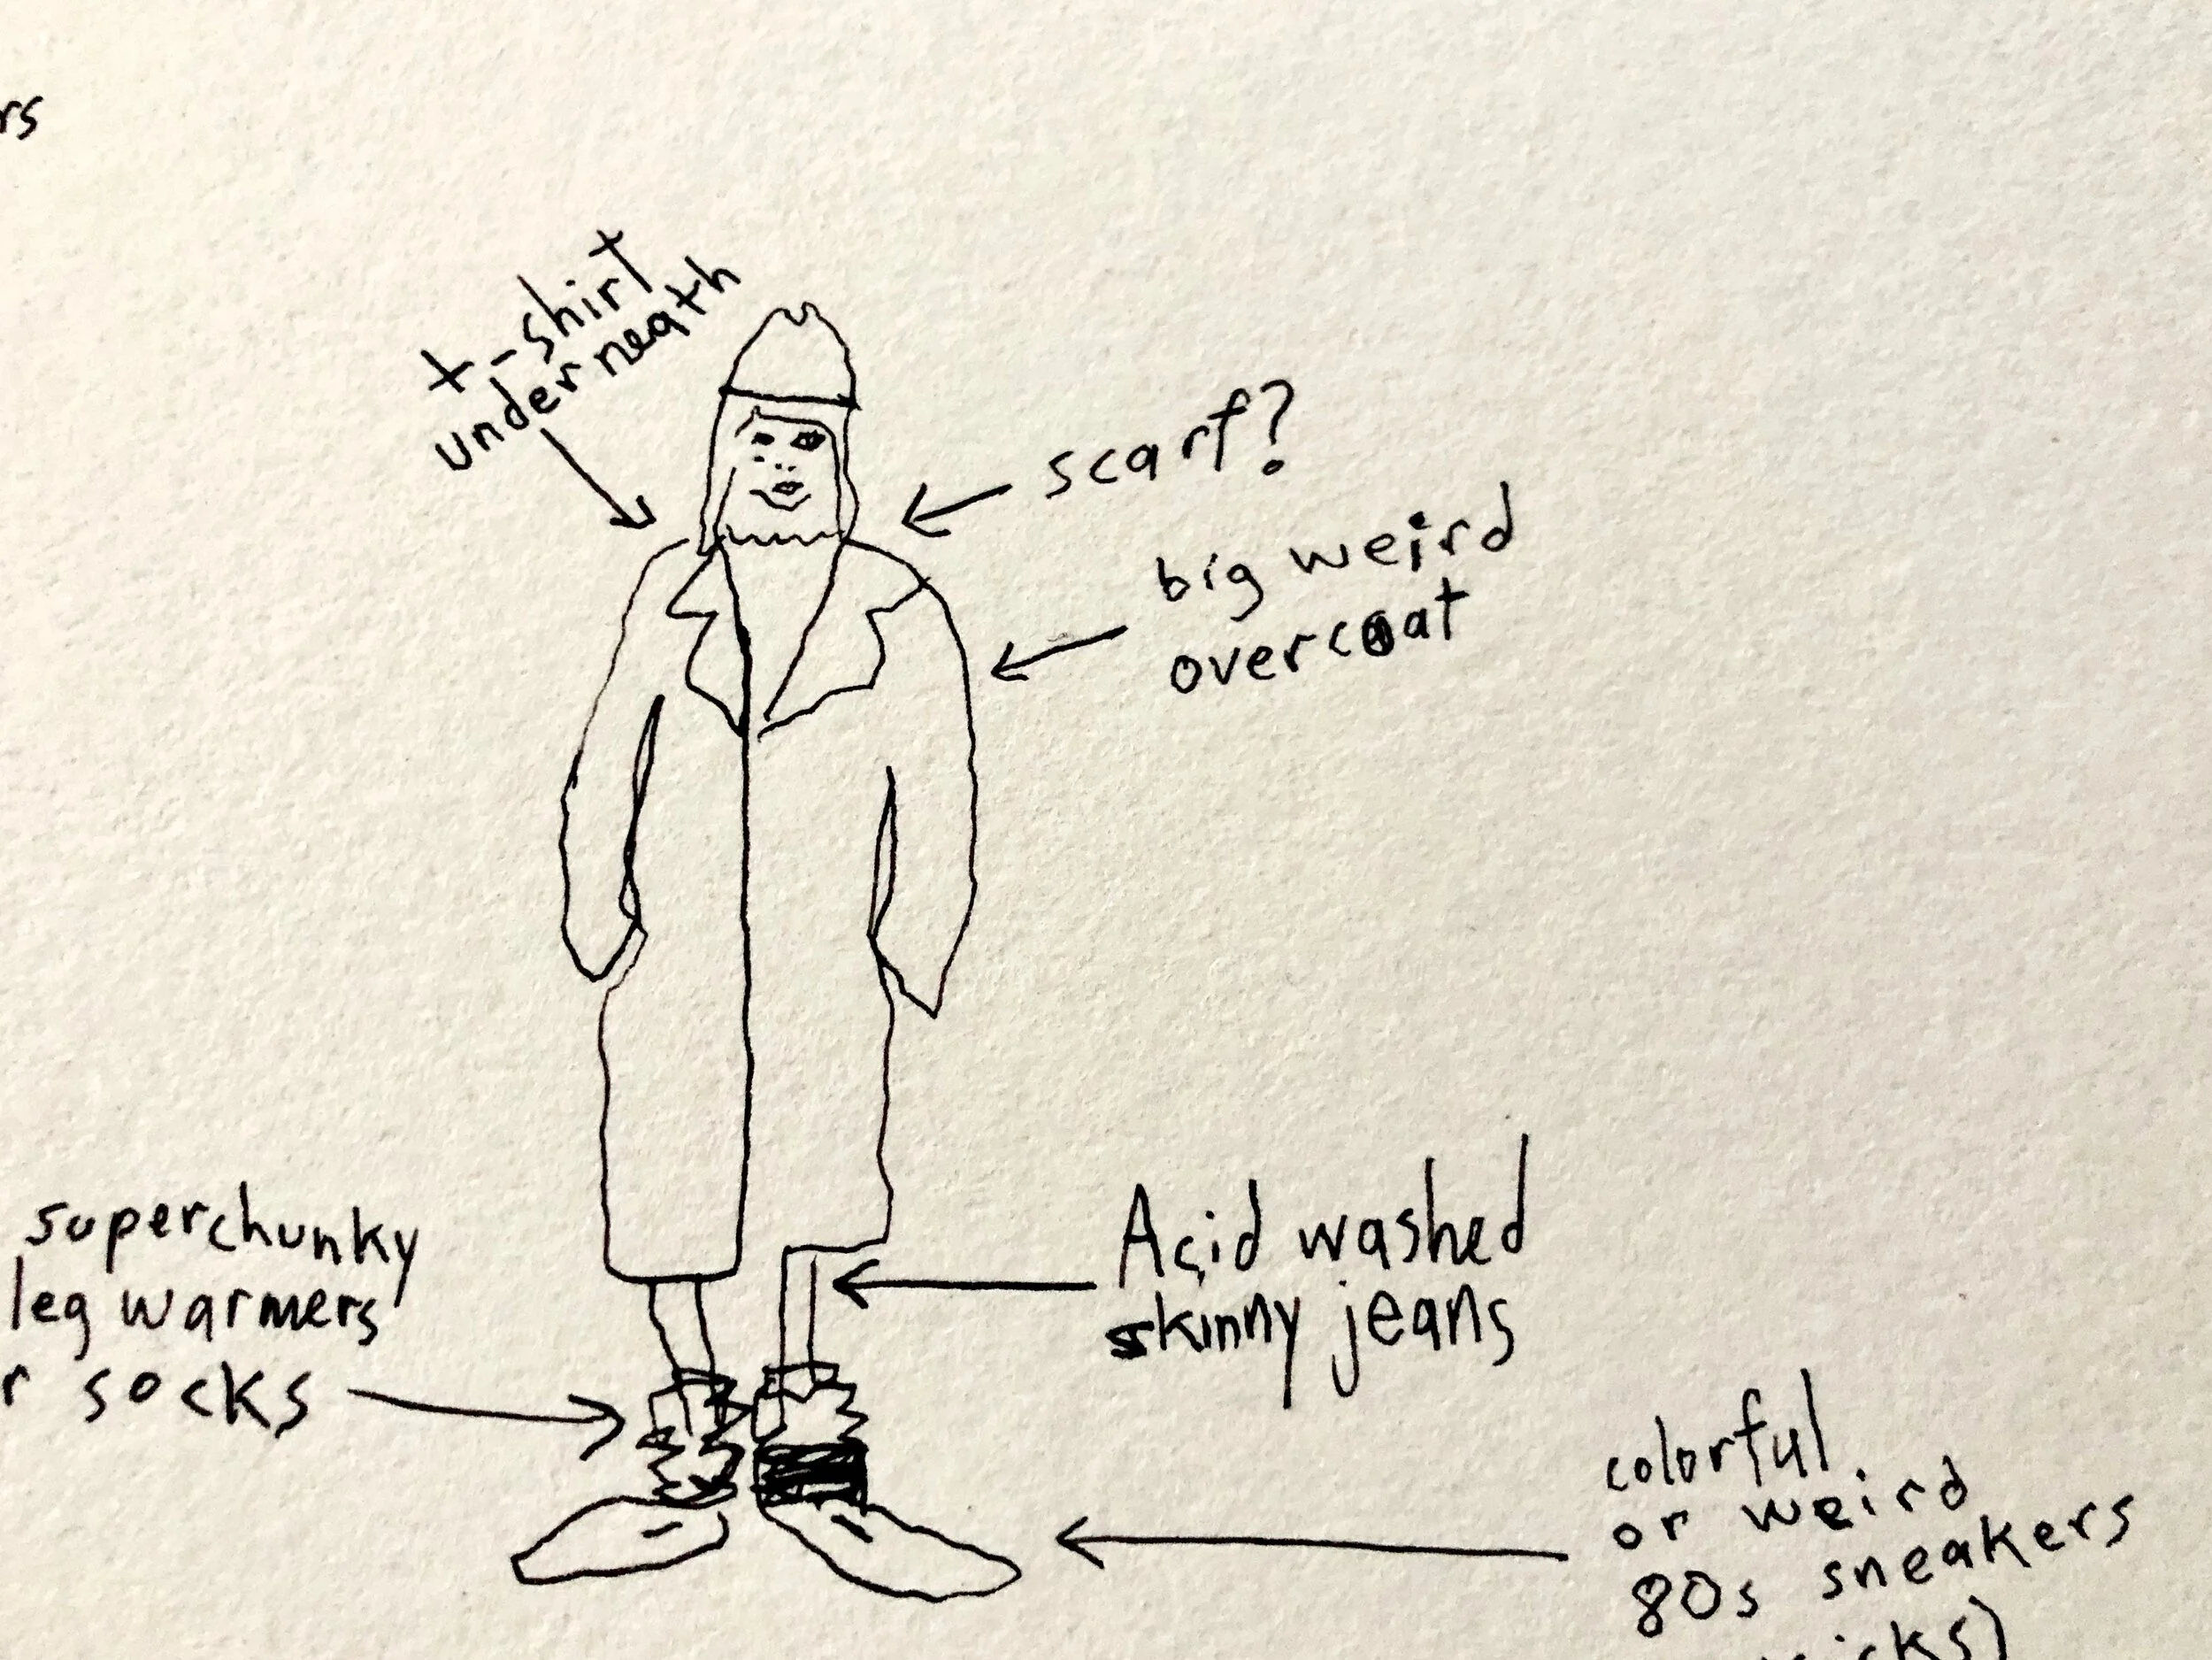 t-shirt
underneath
scarf?
big weird
overcoat
superchunky
leg warmers
socks
Acid washed
skinny jeans
colorful
or weird
80s sneakers